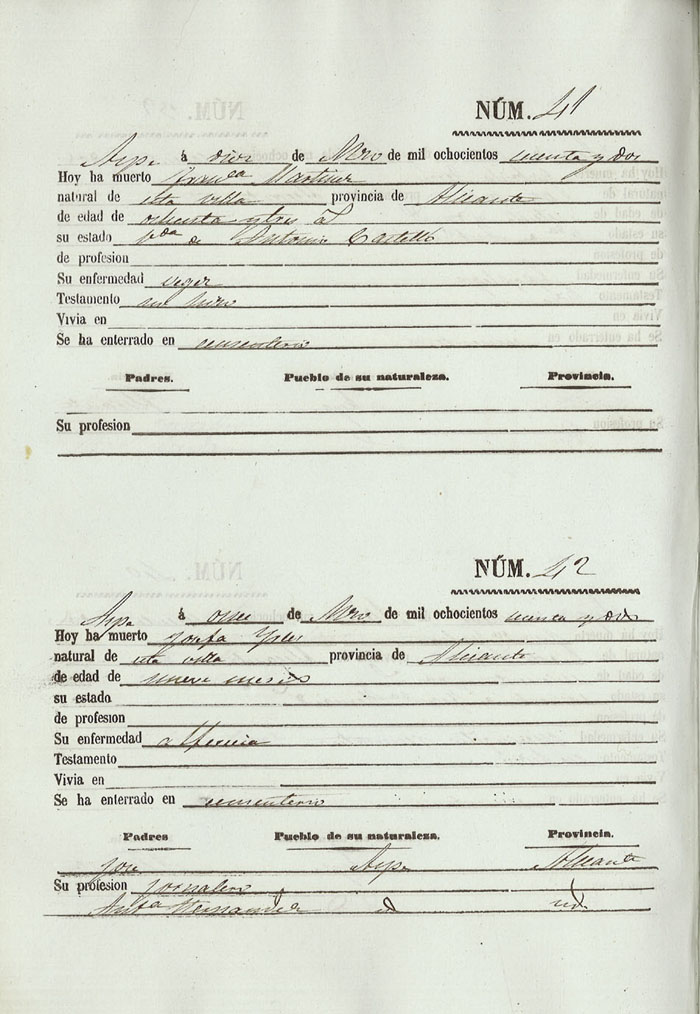 NÚM. 41
Aspe á diez de de mil ochocientos y dos
Hoy ha muerto Franca Martinez
natural de esta villa provincia de Alicante
de edad de ochenta y tres
su estado Vda de Antonio Castelló
de profesion
Su enfermedad vegez
Testamento
Vivia en
Se ha enterrado en cementerio
Padres. Pueblo de su naturaleza. Provincia.
Su profesion
NÚM. 42
Aspe á once de de mil ochocientos y dos
Hoy ha muerto Josefa
natural de esta villa provincia de Alicante
de edad de nueve meses
su estado
de profesion
Su enfermedad
Testamento
Vivia en
Se ha enterrado en cementerio
Padres Pueblo de su naturaleza. Provincia.
Jose Aspe Alicante
Su profesion Jornalero
Hernandez id id